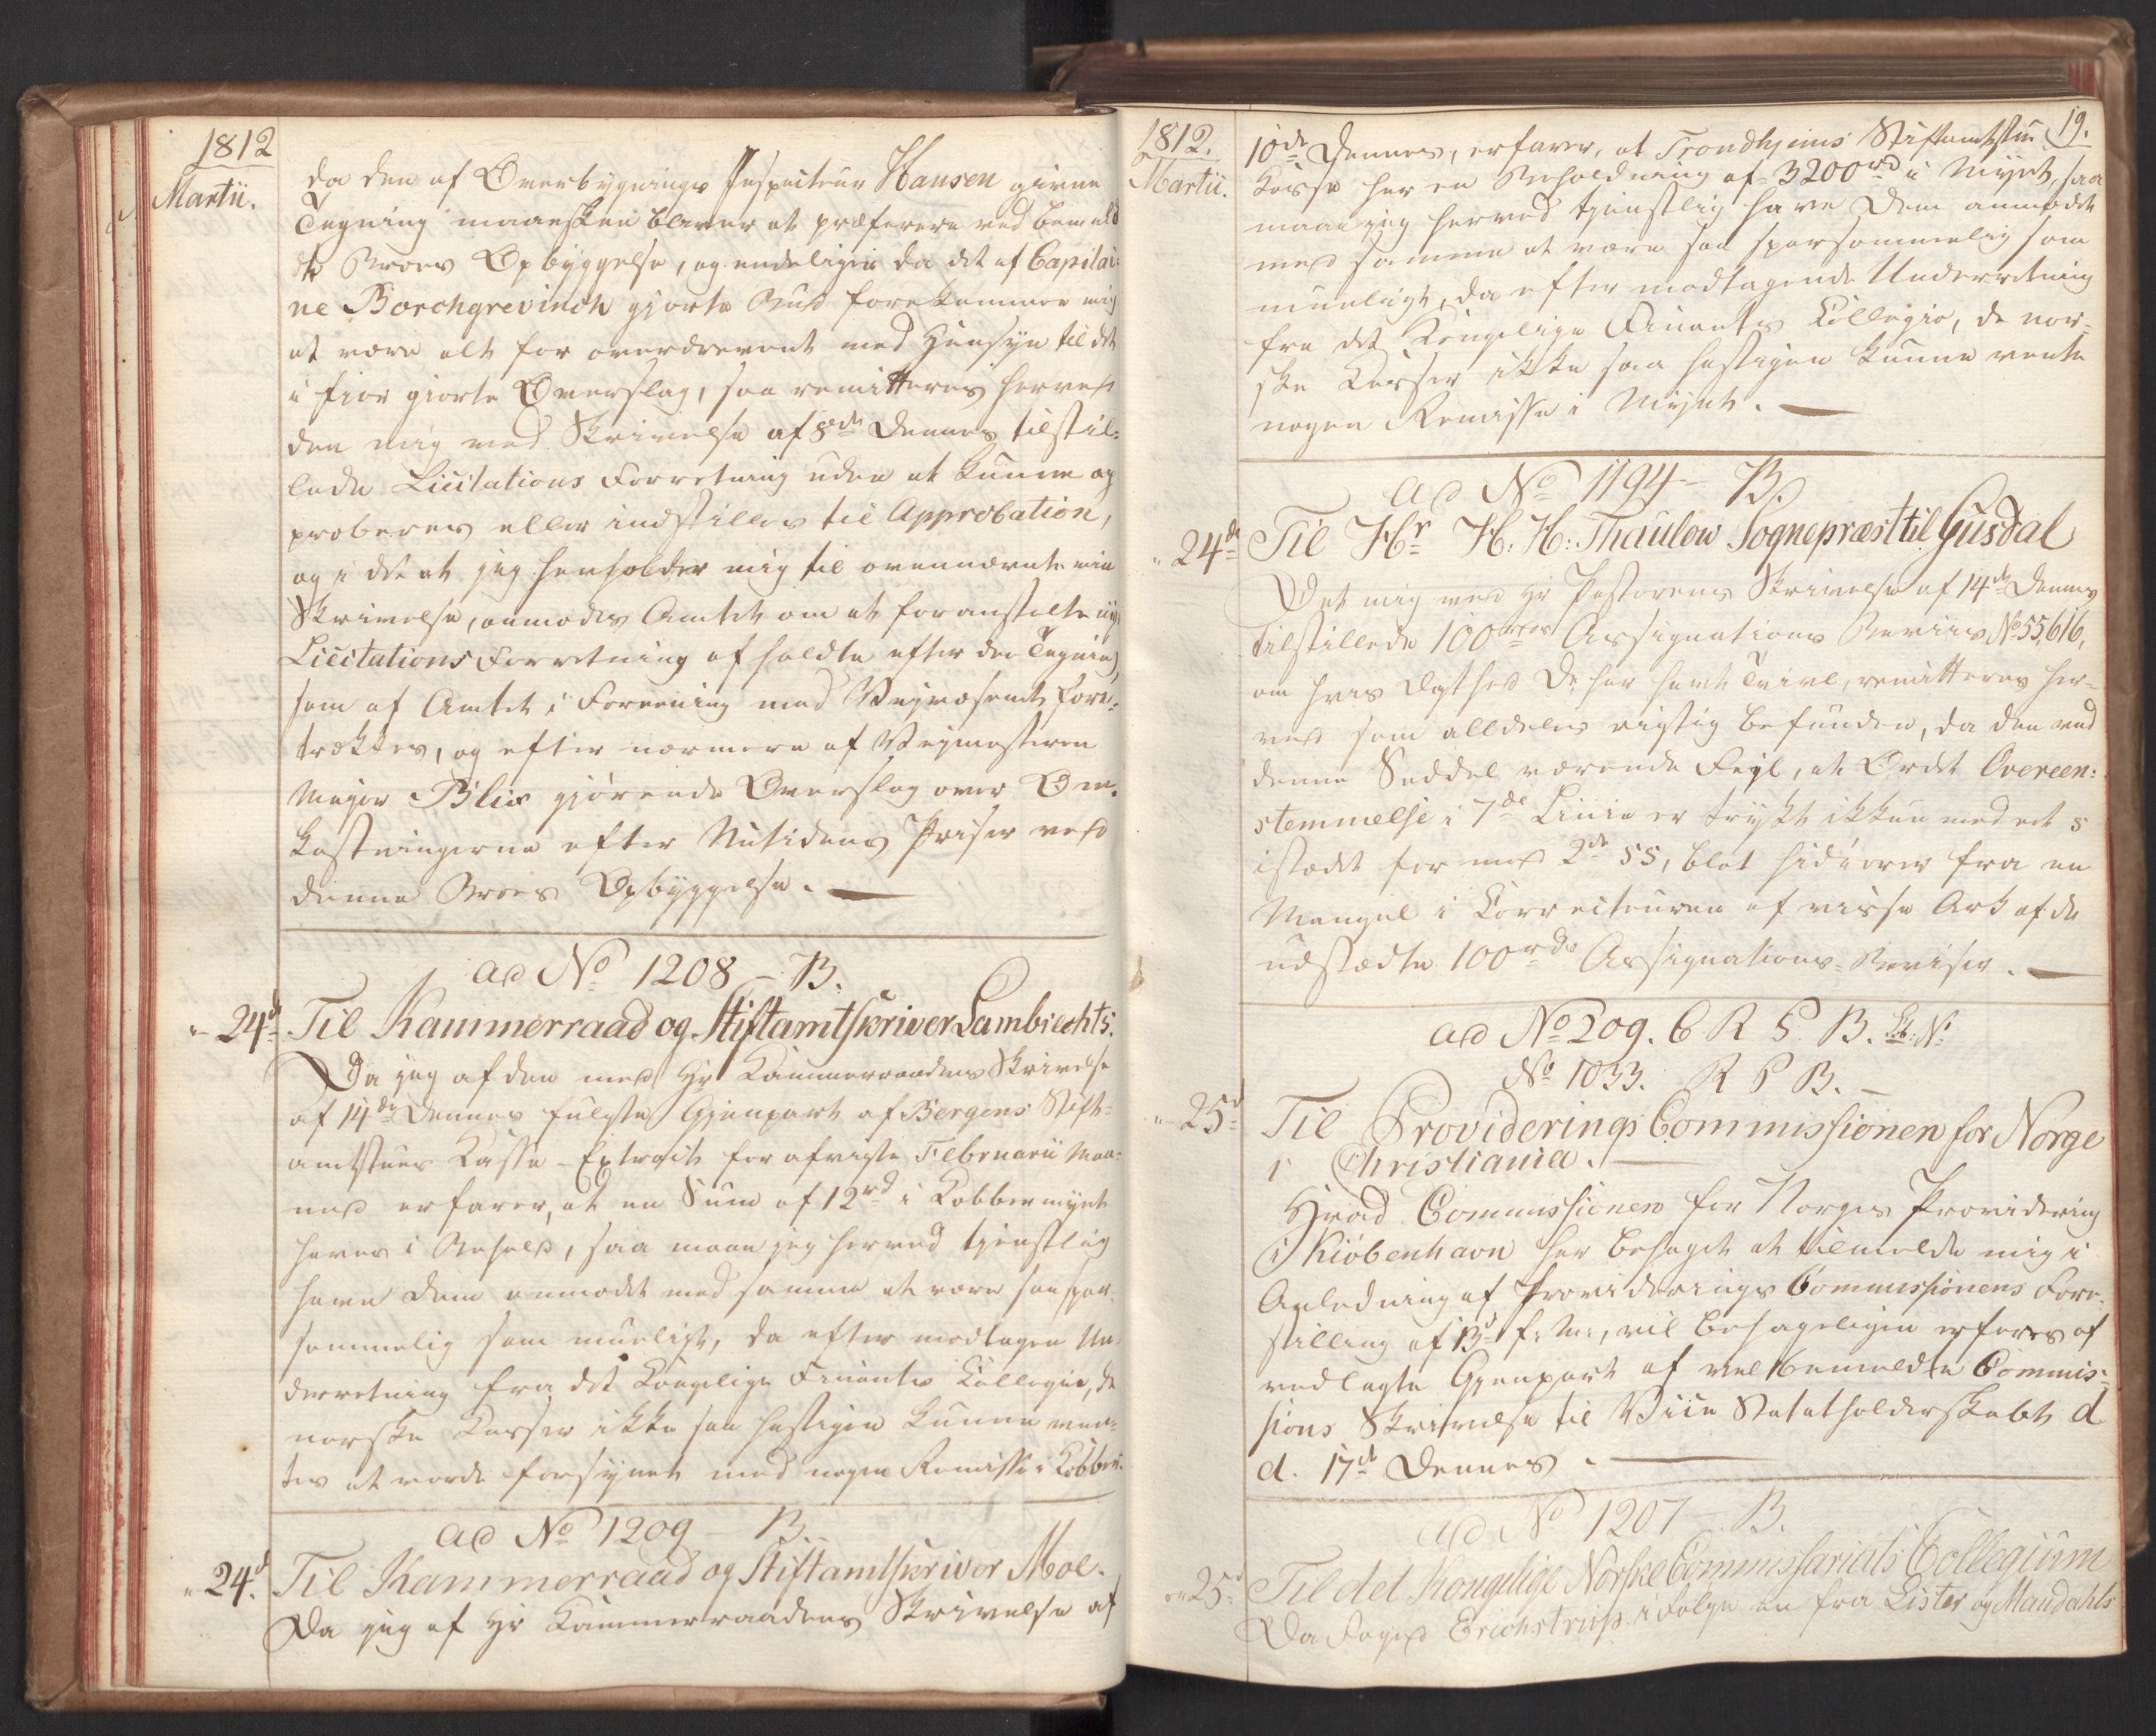 1812
Martii.
da den af Overbygnings Inspecteur Hansen givne
Tegning maaeskee bliver at præferere ved bemeld
te Broes Opbyggelse, og endeligen da det af Capitai:
ne Borchgrevinck gjorte Bud forekommer mig
at være alt for overdrevent med Hensyn til det
i fior giorte Overslag, saa remitteres herved
den mig med Skrivelse af 8de Dennes tilstil:
lede Licitations Forretning uden at kunne ap
proberes eller indstilles til Approbation,
og i det at jeg henholder mig til ovennævnte min
Skrivelse, anmodes Amtet om at foranstalte nye
Licitations Forretning afholdte efter den Tegning,
som af Amtet i Forening med Vejvæsenet fore:
trækkes, og efter nærmere af Vejmesteren
Major Blix gjørende Overslag over Om:
kostningerne efter Nutidens Priser ved
denne Broes Opbyggelse.
ad No 1208 - B.
" 24d Til Kammerraad og Stiftamtskriver Lambrechts.
Da jeg af den med Hr Kammerraadens Skrivelse
af 14de Dennes fulgte Gjenpart af Bergens Stift=
amtstues Kasse-Extract for afvigte Februarii Maa=
ned erfarer, at en Sum af 12rd i Kobbermynt
haves i Behold, saa maae jeg herved tjenstlig
have Dem anmodet med samme at være saa spar
sommelig som mueligt, da efter modtagen Un
derretning fra det Kongelige Finants Collegio, de
norske Kasser ikke saa hastigen kunne ven=
tes at vorde forsynet med nogen Remisse i Kobber.
ad No 1209 - B.
" 24d Til Kammerraad og Stiftamtskriver Moe.
Da jeg af Hr Kammerraadens Skrivelse af
1812.
Martii.
19.
10de Dennes, erfarer, at Trondhjems Stiftamtstue
Kasse har en Beholdning af 3200rd i Mynt, saa
maae jeg herved tjenstlig have Dem anmodet
med samme at være saa sparsommelig som
mueligt, da efter modtagende Underretning
fra det Kongelige Finants Collegio, de nor=
ske Kasser ikke saa hastigen kunne vente
nogen Remisse i Mynt.
ad No 1194 - B.
" 24de Til Hr H. H: Thaulow Sognepræst til Gusdal
Det mig med Hr Pastorens Skrivelse af 14de Dennes
tilstillede 100 rdrs Assignations Beviis No 55,616,
om hvis Ægthed De har havt Tvivl, remitteres her=
ved som alldeles rigtig befunden, da den ved
denne Seddel værende Fejl, at Ordet Overeen:
stemmelse i 7de Linie er trykt ikkun med eet s
istædet for med 2de ss, blot hidrører fra en
Mangel i Correcteuren af visse Ark af de
udstædte 100rds Assignations-Beviser.
ad No 209. C R P B. Lb. N:
No 1033. R P B.
" 25d Til Providerings Commissionen for Norge
i Christiania.
Hvad Commissionen for Norges Providering
i Kiöbenhavn har behaget at tilmelde mig i
Anledning af Providerings Commissionens Fore
stilling af 13d f: M:, vil behageligen erfares af
vedlagte Gjenpart af velbemeldte Commis=
sions Skrivelse til Viice Statholderskabet d.
d. 17de Dennes.
ad No 1207 - B.
" 25d Til det Kongelige Norske Commissariats Collegium
Da Foged Erichstrup i Følge en fra Lister og Mandahls